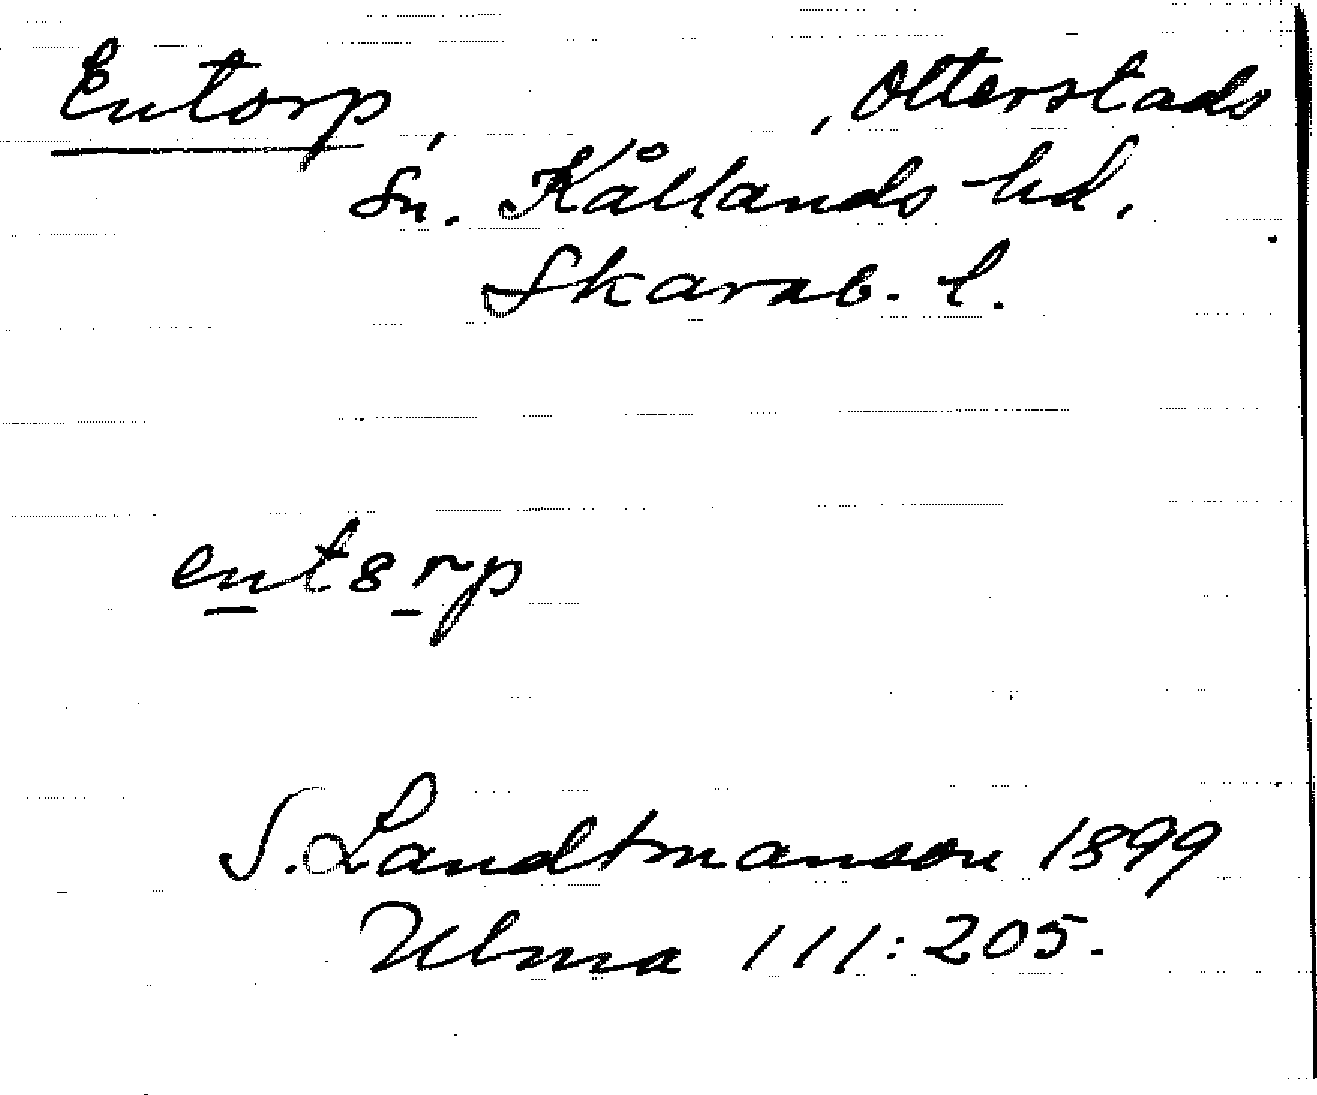 Entorp, , Otterstads
Sn. Kållands hd.
Skarab. l.
ents rp
S. Landtmanson 1899
Ulma 111:205.